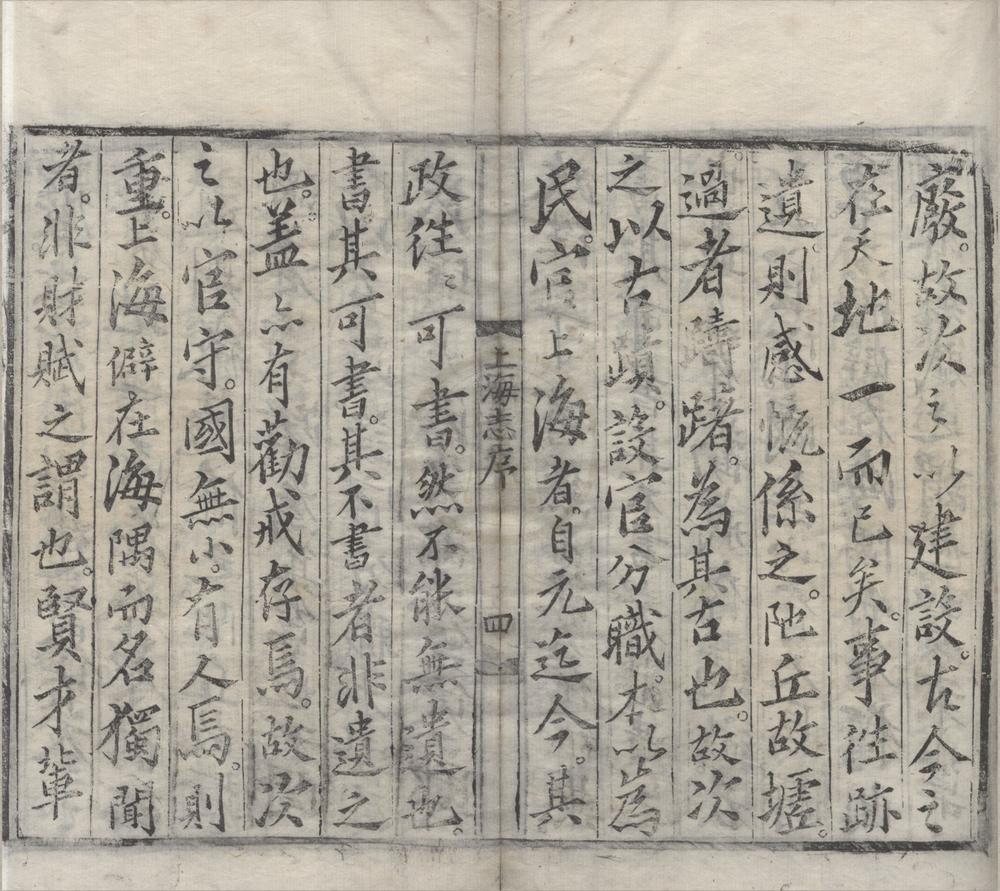 廢。故次之以建設。古今之
在天地一而已矣。事往跡
遺。則感慨係之。阤丘故墟。
過者躊躇。為其古也。故次
之以古蹟。設官分職。本以為
民。官上海者。自元迄今。其
上海志序 四
政徃〻可書。然不能無遺也。
書其可書。其不書者非遺之
也。盖亦有勸戒存焉。故次
之以官守。國無小。有人焉則
重。上海僻在海隅而名獨聞
者。非財賦之謂也。賢才輩